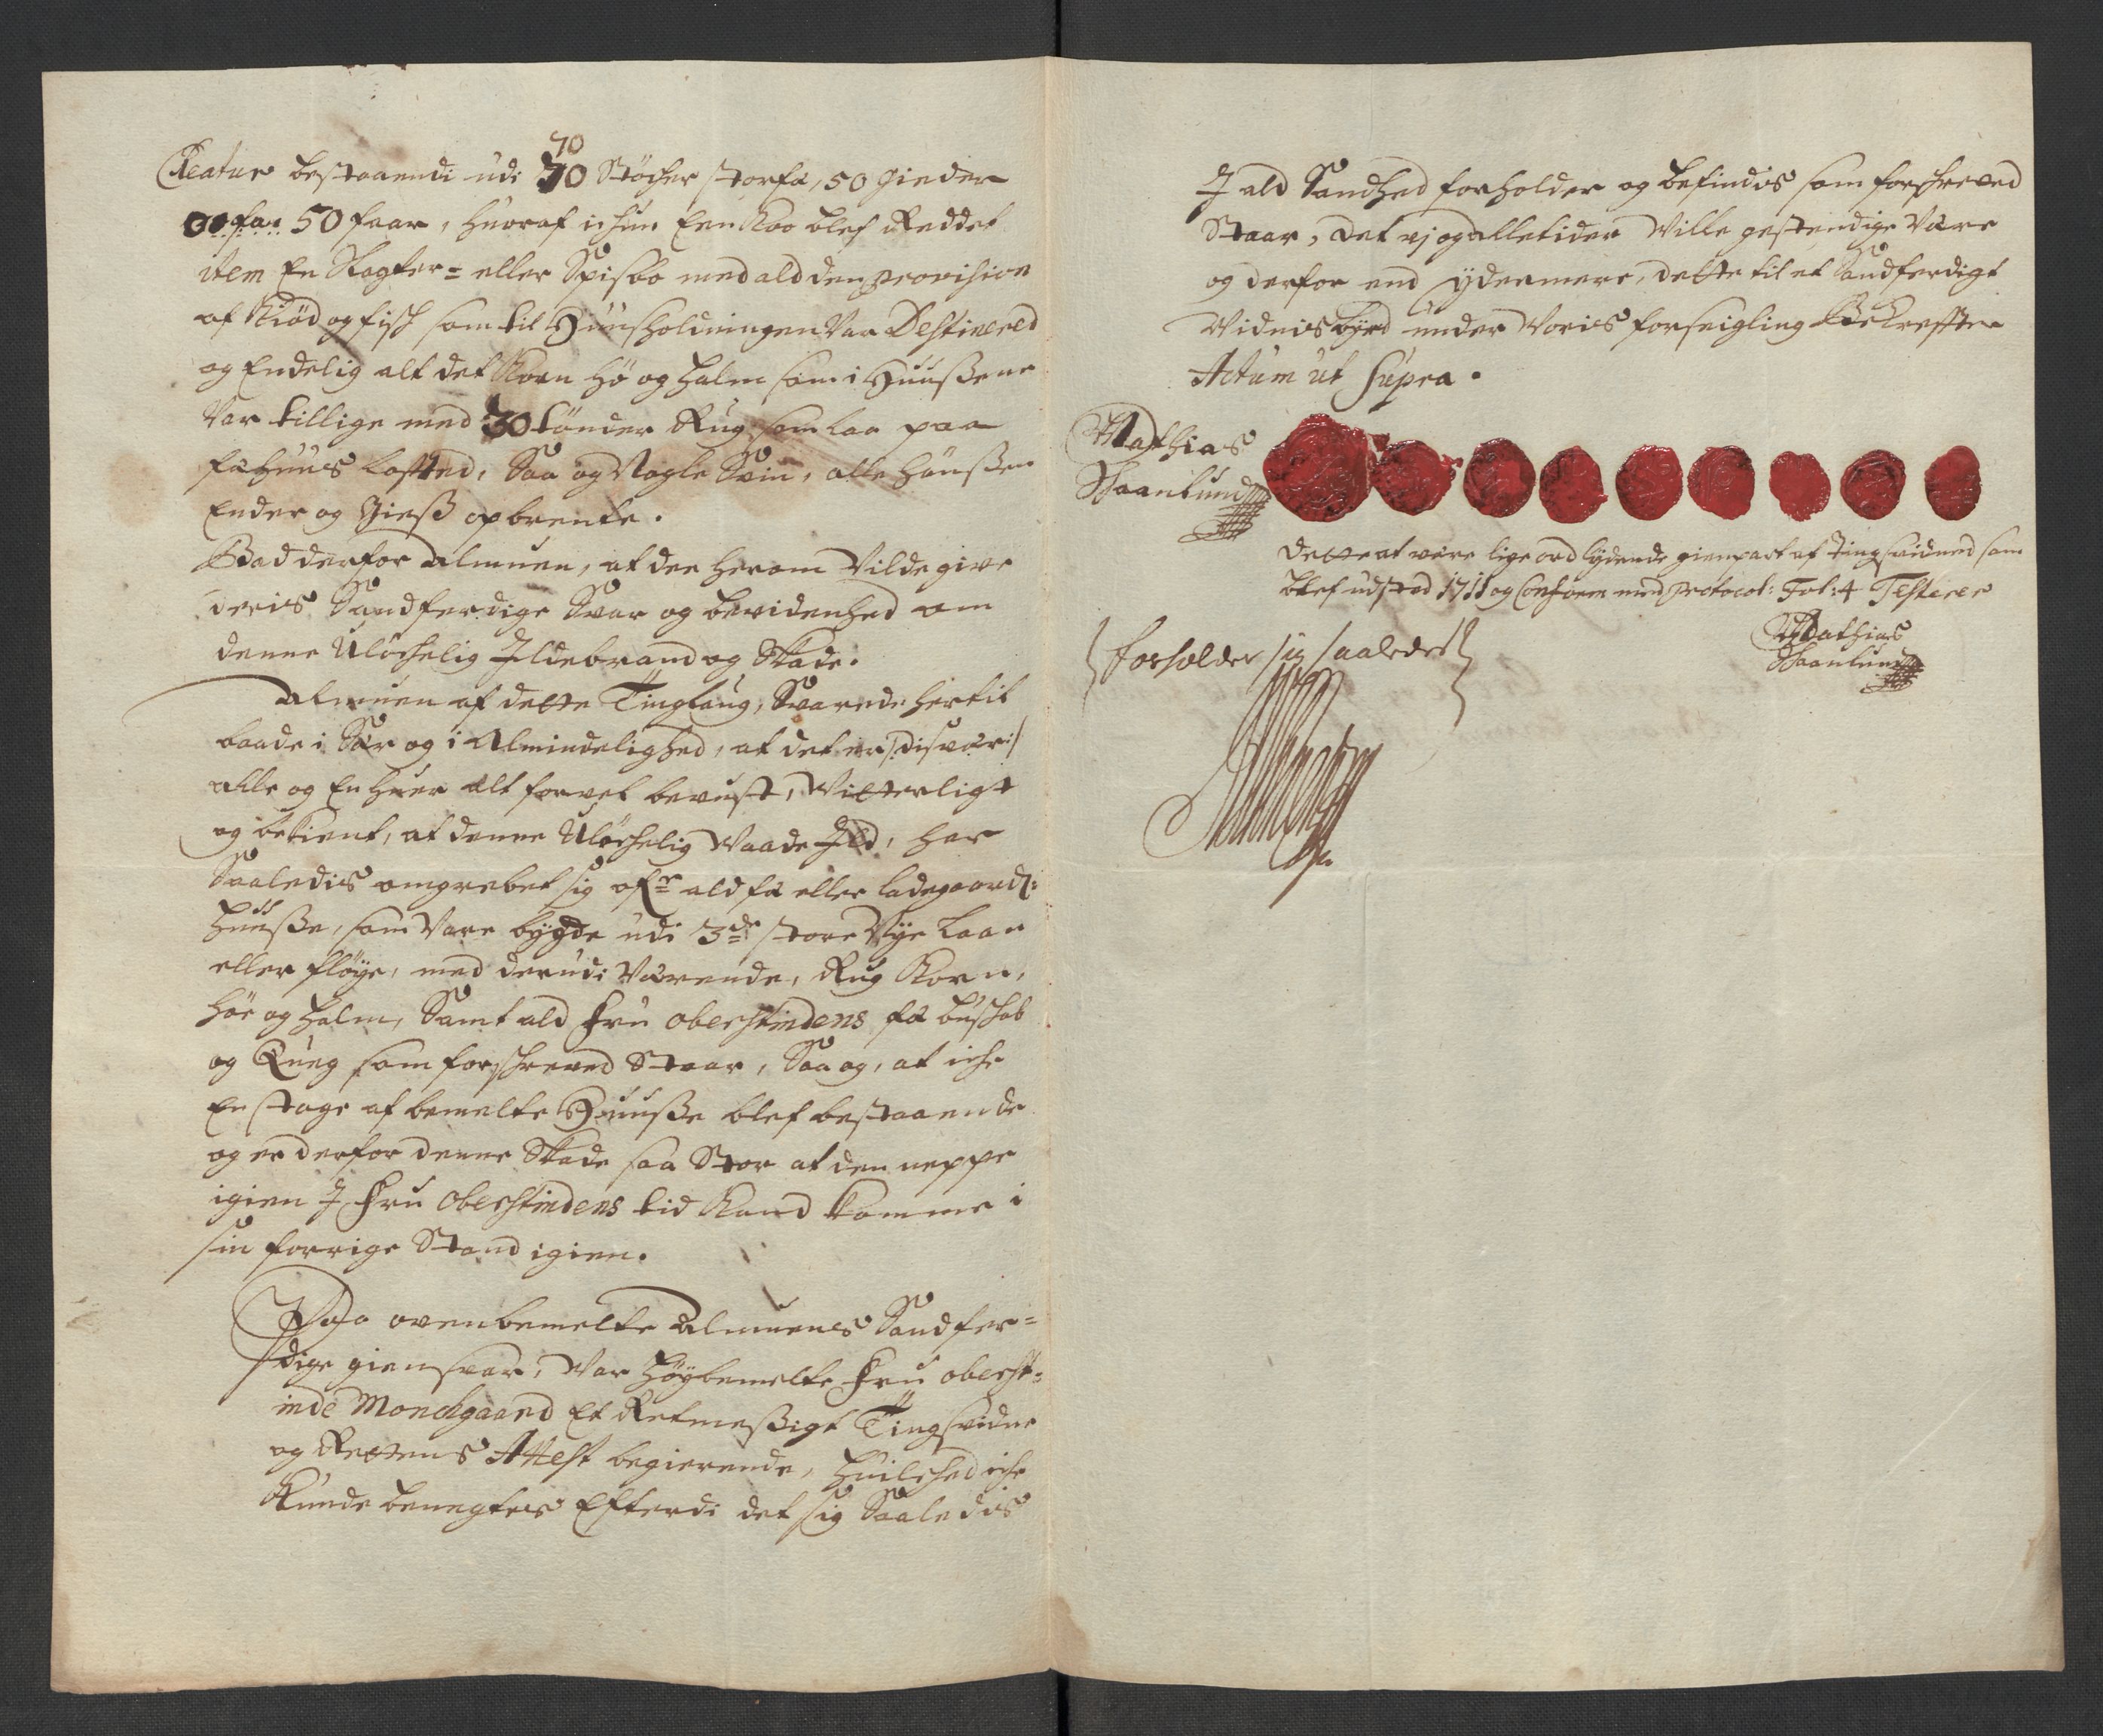 70
Creatur bestaaendi udi 70 Støcher storfæ, 50 gieder
50 faar, huoraf ichun Een Koo blef Reddet
item En Slagter= eller Spisboe med ald den provision
af Kiød og fisch som til Huusholdningen Var Destinered
og Endelig alt det Korn Hø og halm som i Huußene
Var tillige med 30 tønder Rug som laa paa
fæhuus lofted, Saa og Nogle Svin, alle hønßer
Ender og Gieß opbrente.
Bad derfor Almuen, at de herom Vilde give
deris Sandferdige Svar og bevidenhed om
denne Uløchelig Ildebrand og Skade.
Almuen af dette Tinglaug, Svarede hertil
baade i Sær og i Almindelighed, at det er /: disvær :/
alle og En huer alt forvel bevust, Vitterligt
og bekient, at denne Uløchelig Vaade Ild, har
Saaledis omgrebet sig ofr ald fæ eller ladegaards=
Huuße, som Vare bygde udi 3de store Nye Laaer
eller fløye, med derudi Værende, Rug Korn,
Høe og halm, Samt ald Fru Oberstindens fæ buschab
og Qvæg som forschreved Staar, Saa og, at iche
En stage af bemelte Huuße blef bestaaende
og er derfor denne Skade saa Stor at den neppe
igien I Fru Oberstindens tid Kand komme i
sin forrige Stand igien.
Paa ovenbemelte Almuens Sandfer=
dige giensvar, Var Høybemelte Fru Oberst=
inde Monchgaard Et Retmeßigt Tingsvidne
og Rettens Attest begierende, huilched iche
Kunde benegtes Efterdi det sig Saaledis
I ald Sandhed forholder og befindis som forschreved
Staar, det vj og alletider Ville gestendige Være
og derfor end ydermere, dette til et Sandferdigt
Vidnisbyrd under Voris forseigling Bekreffter
Actum ut supra.
Mathias
Skaanlund
Dette at være lige ord lydende gienpart af Tingsvidned som
blef udsted 1711 og Conform med protocol: Fol: 4 Testerer
Mathias
Skaanlund
forholder sig saaledes